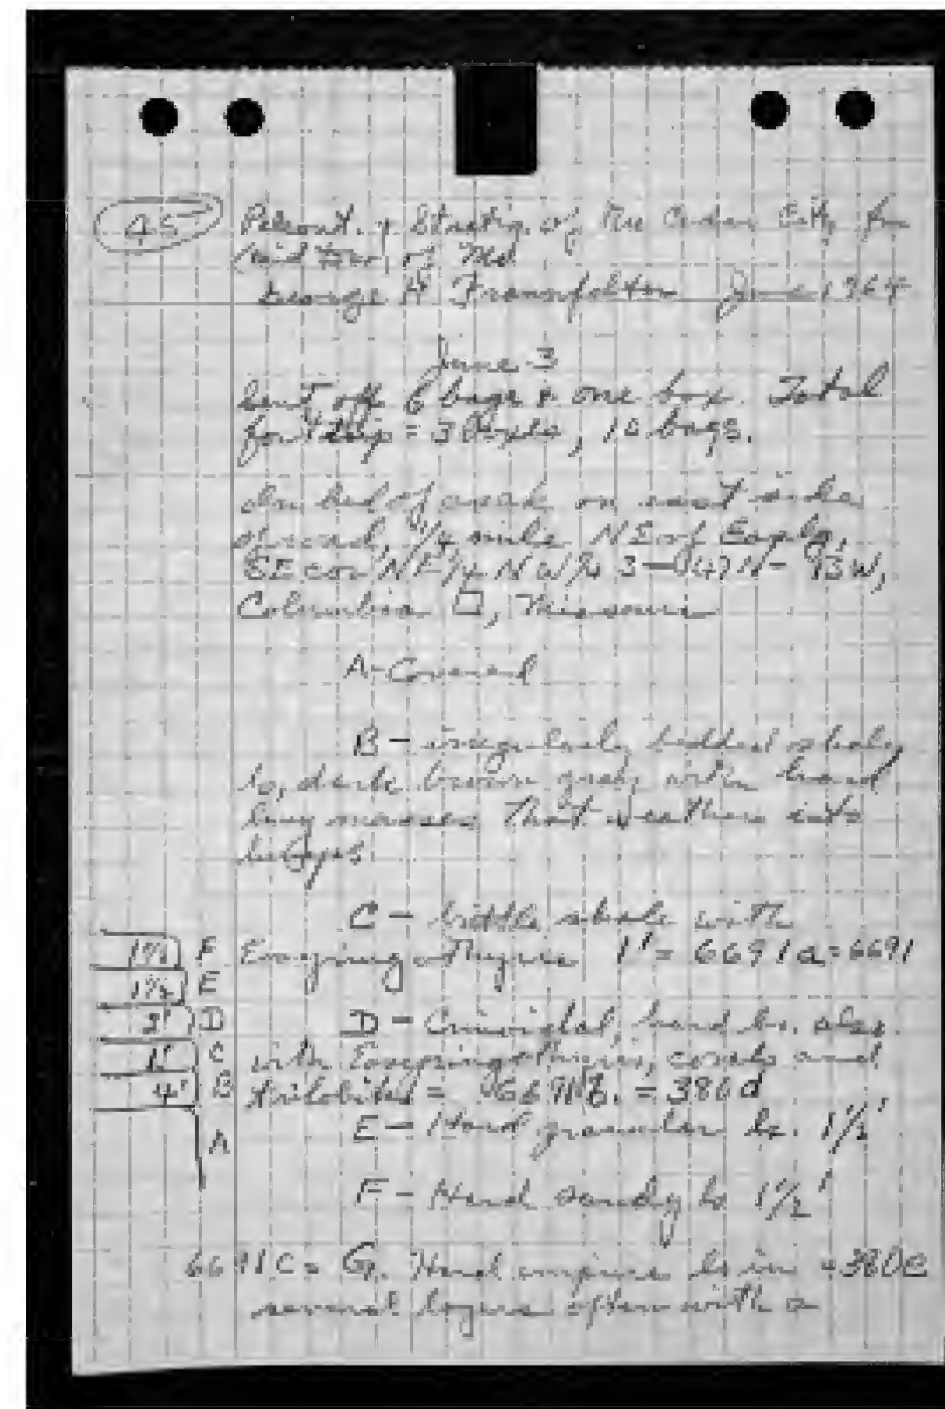 45 Paleont. & Stratig. of the Cedar City fm
Mid Dev. of Mo.
George H Fraunfelter June 1964
June 3
Sent off 6 bags & one box. Total
for trip = 3 boxes, 10 bags.
In bed of creek on east side
of road, 1/4 mile NE of
SE cor NE 1/4 NW 1/4 3-47N-13W,
Columbia □, Missouri
A-Covered
B - irregularly bedded shaly
ls, dark brown gray with hard
limy masses that weathers into
C - brittle shale with
F 1' = 6691a = 6691
E
2' D D - Crinoidal, hard ls. also
1' C with corals and
4' B trilobites = 6691b. = 386d
A E - Hard granular ls. 1 1/2'
F - Hard sandy ls 1 1/2'
6691c = G. Hard ls in = 380e
several layers often with a